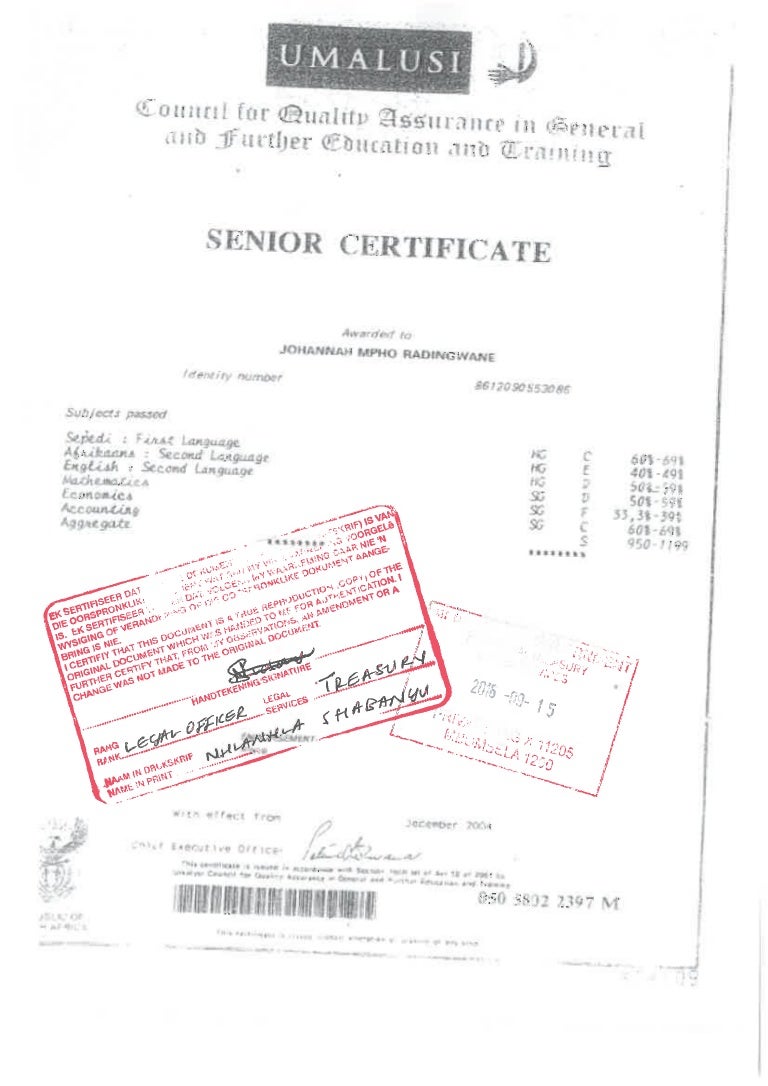 UMALUSI
Council for Quality Assurance in General
and Further Education and Training
SENIOR CERTIFICATE
Awarded to
JOHANNAH MPHO RADINGWANE
Identity number 8612090553086
Subjects passed
Sepedi : First Language HG C 60%-69%
Afrikaans : Second Language HG E 40%-49%
English : Second Language HG D 50%-59%
Mathematics SG D 50%-59%
Economics SG F 33,3%-39%
Accounting SG C 60%-69%
Aggregate S 950-1199
******** ********
EK SERTIFISEER DAT VAN
DIE OORSPRONKLIKE VOORGELÊ
IS. EK SERTIFISEER DAAR NIE 'N
WYSIGING OF VERANDERING OP DIE OORSPRONKLIKE DOKUMENT AANGE-
BRING IS NIE.
I CERTIFIY THAT THIS DOCUMENT IS A TRUE REPRODUCTION (COPY) OF THE
ORIGINAL DOCUMENT WHICH WAS HANDED TO ME FOR AUTHENTICATION. I
FURTHER CERTIFY THAT, FROM MY OBSERVATIONS, AN AMENDMENT OR A
CHANGE WAS NOT MADE TO THE ORIGINAL DOCUMENT.
HANDTEKENING/SIGNATURE
RANG
RANK LEGAL OFFICER LEGAL SERVICES TREASURY
NAAM IN DRUKSKRIF
NAME IN PRINT NHLANHLA SHABANGU
2015 -09- 15
X 11205
1200
With effect from December 2004
Chief Executive Officer
This certificate is issued in accordance with Section of Act of 2001 to
Umalusi Council for Quality Assurance in General and Further Education and Training
050 3802 2397 M